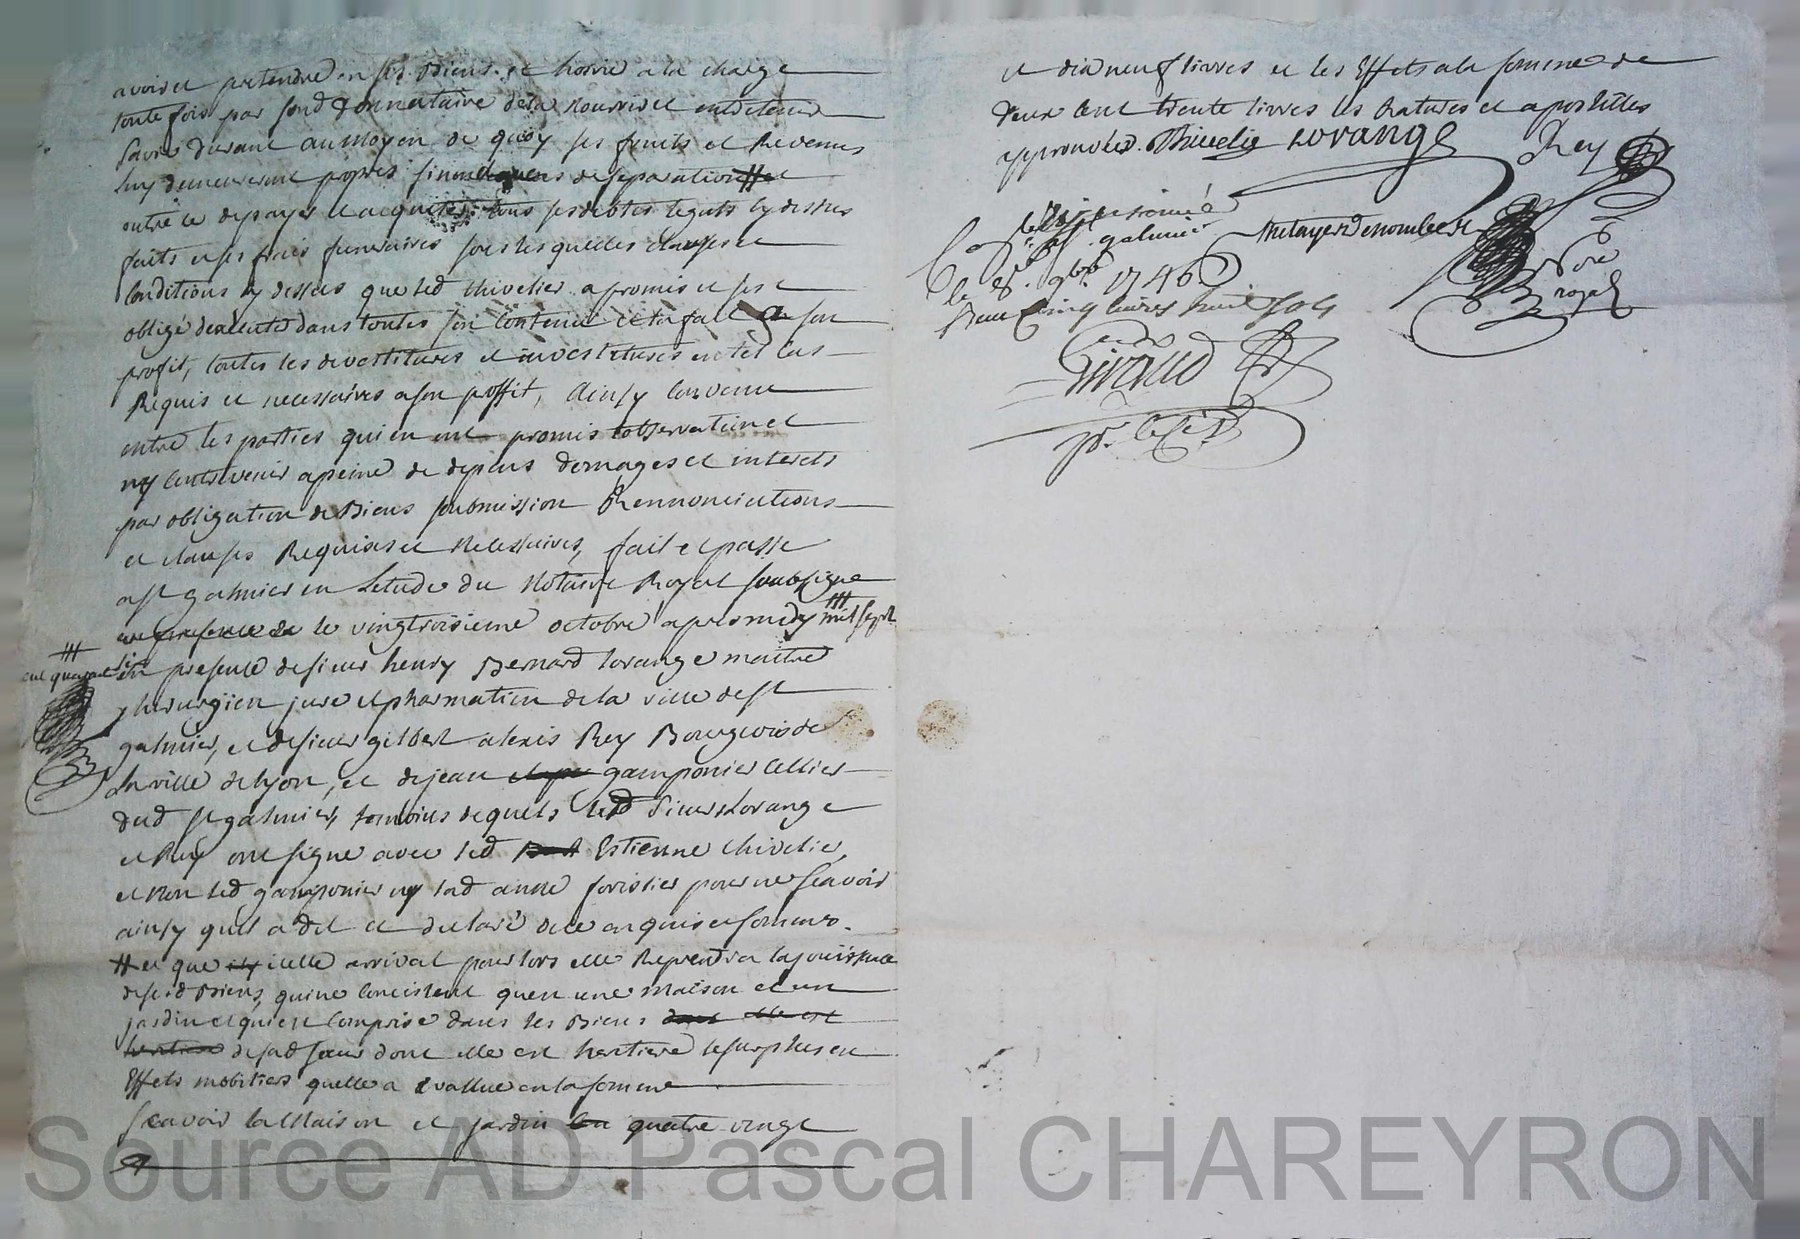 avoir et pretendre en ses Biens et hoirie a la charge
toute fois par sond donnataire de la nourrir et entretenir
sa vie durant au moyen de quoy ses fruits et Revenus
luy demeureront propres sinon en cas de separation #
outre de payer et acquitter tous ses debtes legats cy dessus
faits et ses frais funeraires sous lesquelles clauses et
Conditions cy dessus que led thivelier a promis et s'est
obligé dexecuter dans toutes son Contenu et a fait a son
profit, toutes les devestitures et investitures en tel cas
Requis et necessaires a son proffit, Ainsy Convenu
entre les parties qui en ont promis l'observation et
ny Contrevenir a peine de depens domages et interets
par obligation de Biens soubmission Rennonciations
et clauses Requises et Necessaires, fait et passé
a st galmier en Letude du Notaire Royal soubsigné
en presence de le vingtroisieme octobre apres midy ### mil sept
### cent quarante six
en presence de sieur henry Bernard lorange maitre
chirurgien juré et pharmatien de la ville de st
galmier, et de sieur gilbert alexis Rey Bourgeois de
la ville de lyon, et de jean gamponier Cellier
dud st galmier, temoins dequels led Sieurs Lorange
et Rey ont signé avec led Estienne thivelier,
et non led gamponier ny lad anne forissier pour ne scavoir
ainsy quils a dit et declaré de ce enquis et sommés.
# et que icelle arrivat pour lors elle Reprendra la jouissance
desed Biens, qui ne Concistent quen une maison et un
jardin et qui est Comprise dans les Biens dont elle est
heritiere desad soeur dont elle est heritiere le surplus en
Effets mobiliers quelle a evallué en la somme
scavoir la Maison et jardin quatre vingt
et dix neuf livres et les Effets a la somme de
deux cent trente livres les Ratures et apostilles
approuvées. Thivelier Lorange Rey
Metayer Denombret
Nore
royal
st galmier
le 8e 9bre 1746
Reçu Cinq livres huit sols
Giraud
Source AD Pascal CHAREYRON